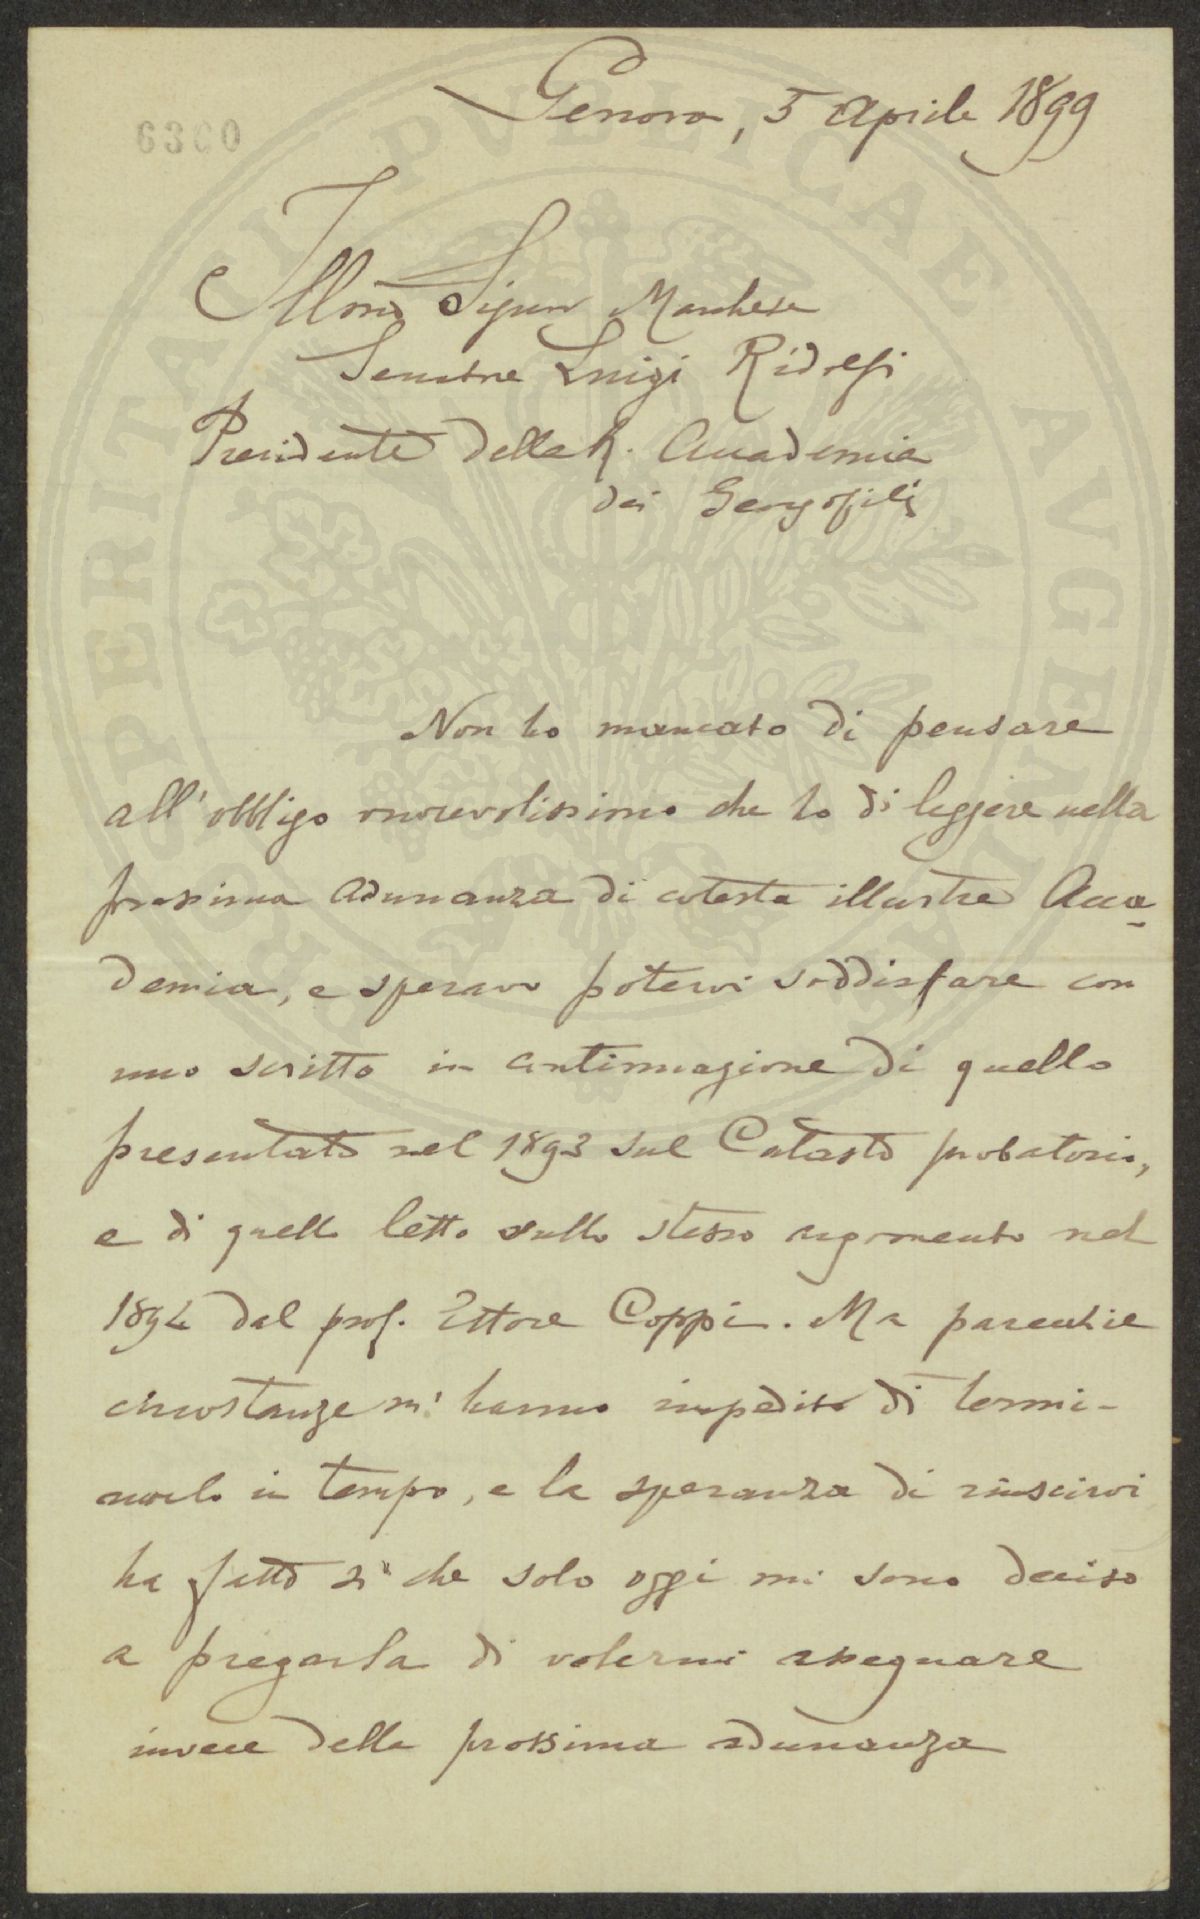 Genova, 5 Aprile 1899
6360
Illmo Signor Marchese
Senatore Luigi Ridolfi
Presidente della R. Accademia
dei Georgofili
Non ho mancato di pensare
all'obbligo onorevolissimo che ho di leggere nella
prossima adunanza di cotesta illustre Acca-
demia, e speravo potervi soddisfare con
uno scritto in continuazione di quello
presentato nel 1893 sul Catasto probatorio,
e di quello letto sullo stesso argomento nel
1894 dal prof. Ettore Coppi. Ma parecchie
circostanze mi hanno impedito di termi-
narlo in tempo, e la speranza di riuscirvi
ha fatto sì che solo oggi mi sono deciso
a pregarla di volermi assegnare
invece della prossima adunanza
PROSPERITATI PUBLICAE AUGENDAE